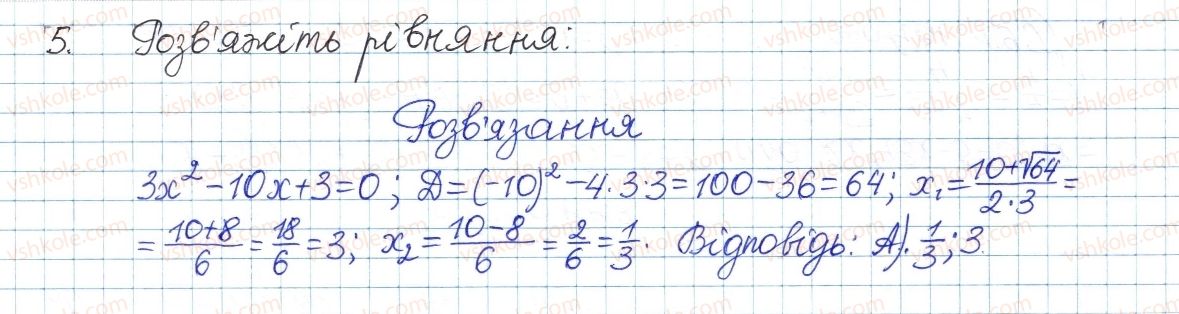 5. Розв'яжіть рівняння:
Розв'язання
3x² - 10x + 3 = 0; Д = (-10)² - 4·3·3 = 100 - 36 = 64; x₁ = (10+√64)/(2·3) =
= (10+8)/6 = 18/6 = 3; x₂ = (10-8)/6 = 2/6 = 1/3. Відповідь: А). 1/3; 3.